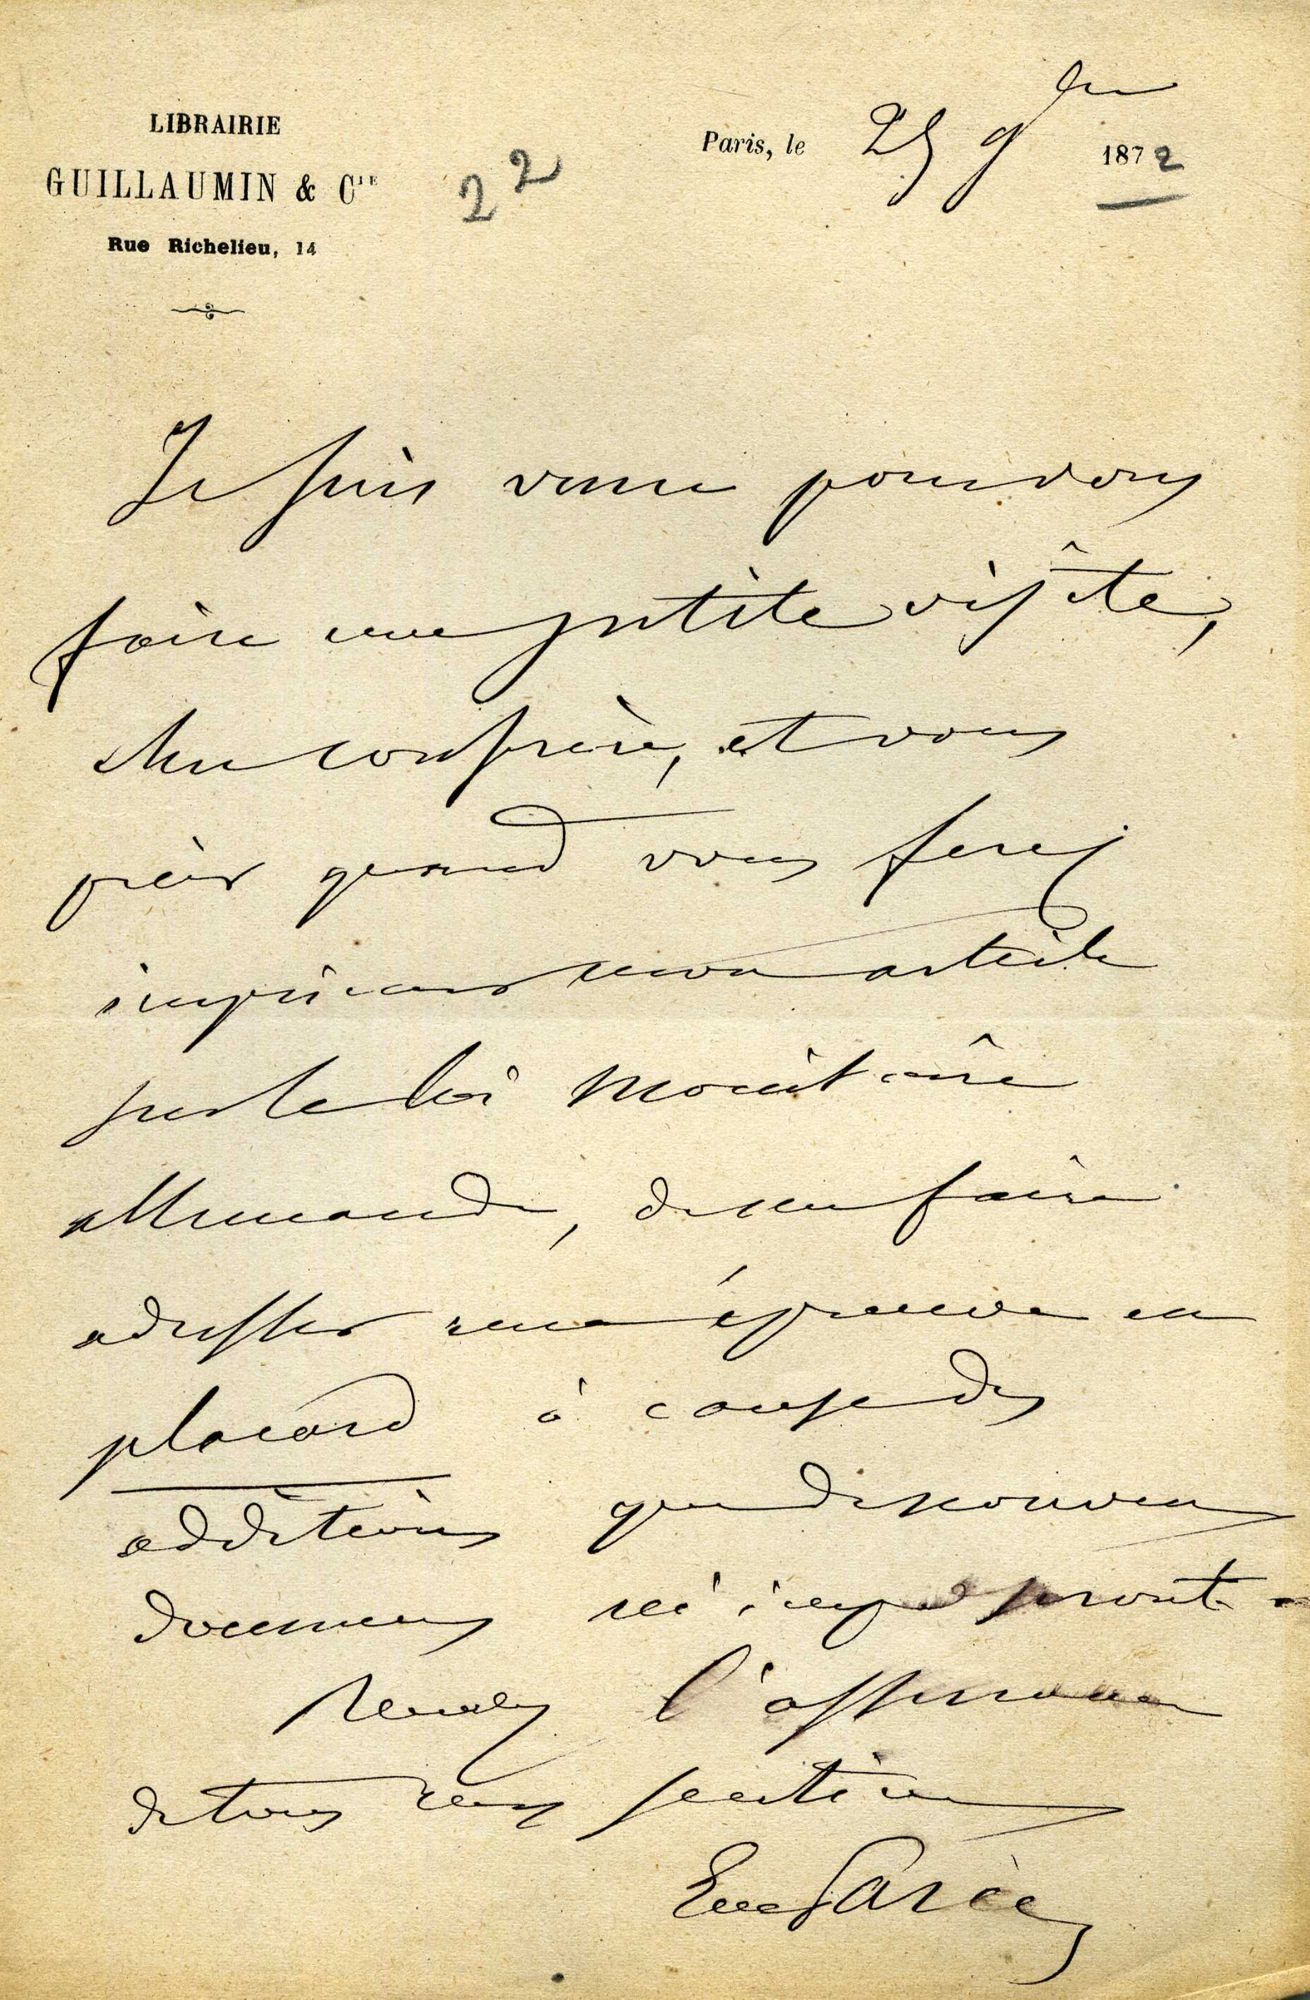 LIBRAIRIE
GUILLAUMIN & Cie
Rue Richelieu, 14
22
Paris, le 25 9bre 1872
Je suis venu pour vous
faire une petite visite,
cher confrère, et vous
prier quand vous ferez
imprimer mon article
sur la loi monétaire
allemande, de m'en faire
adresser une épreuve en
placard à cause des
additions que de nouveaux
documens m'imposeront.
l'assurance
de tous mes sentimens